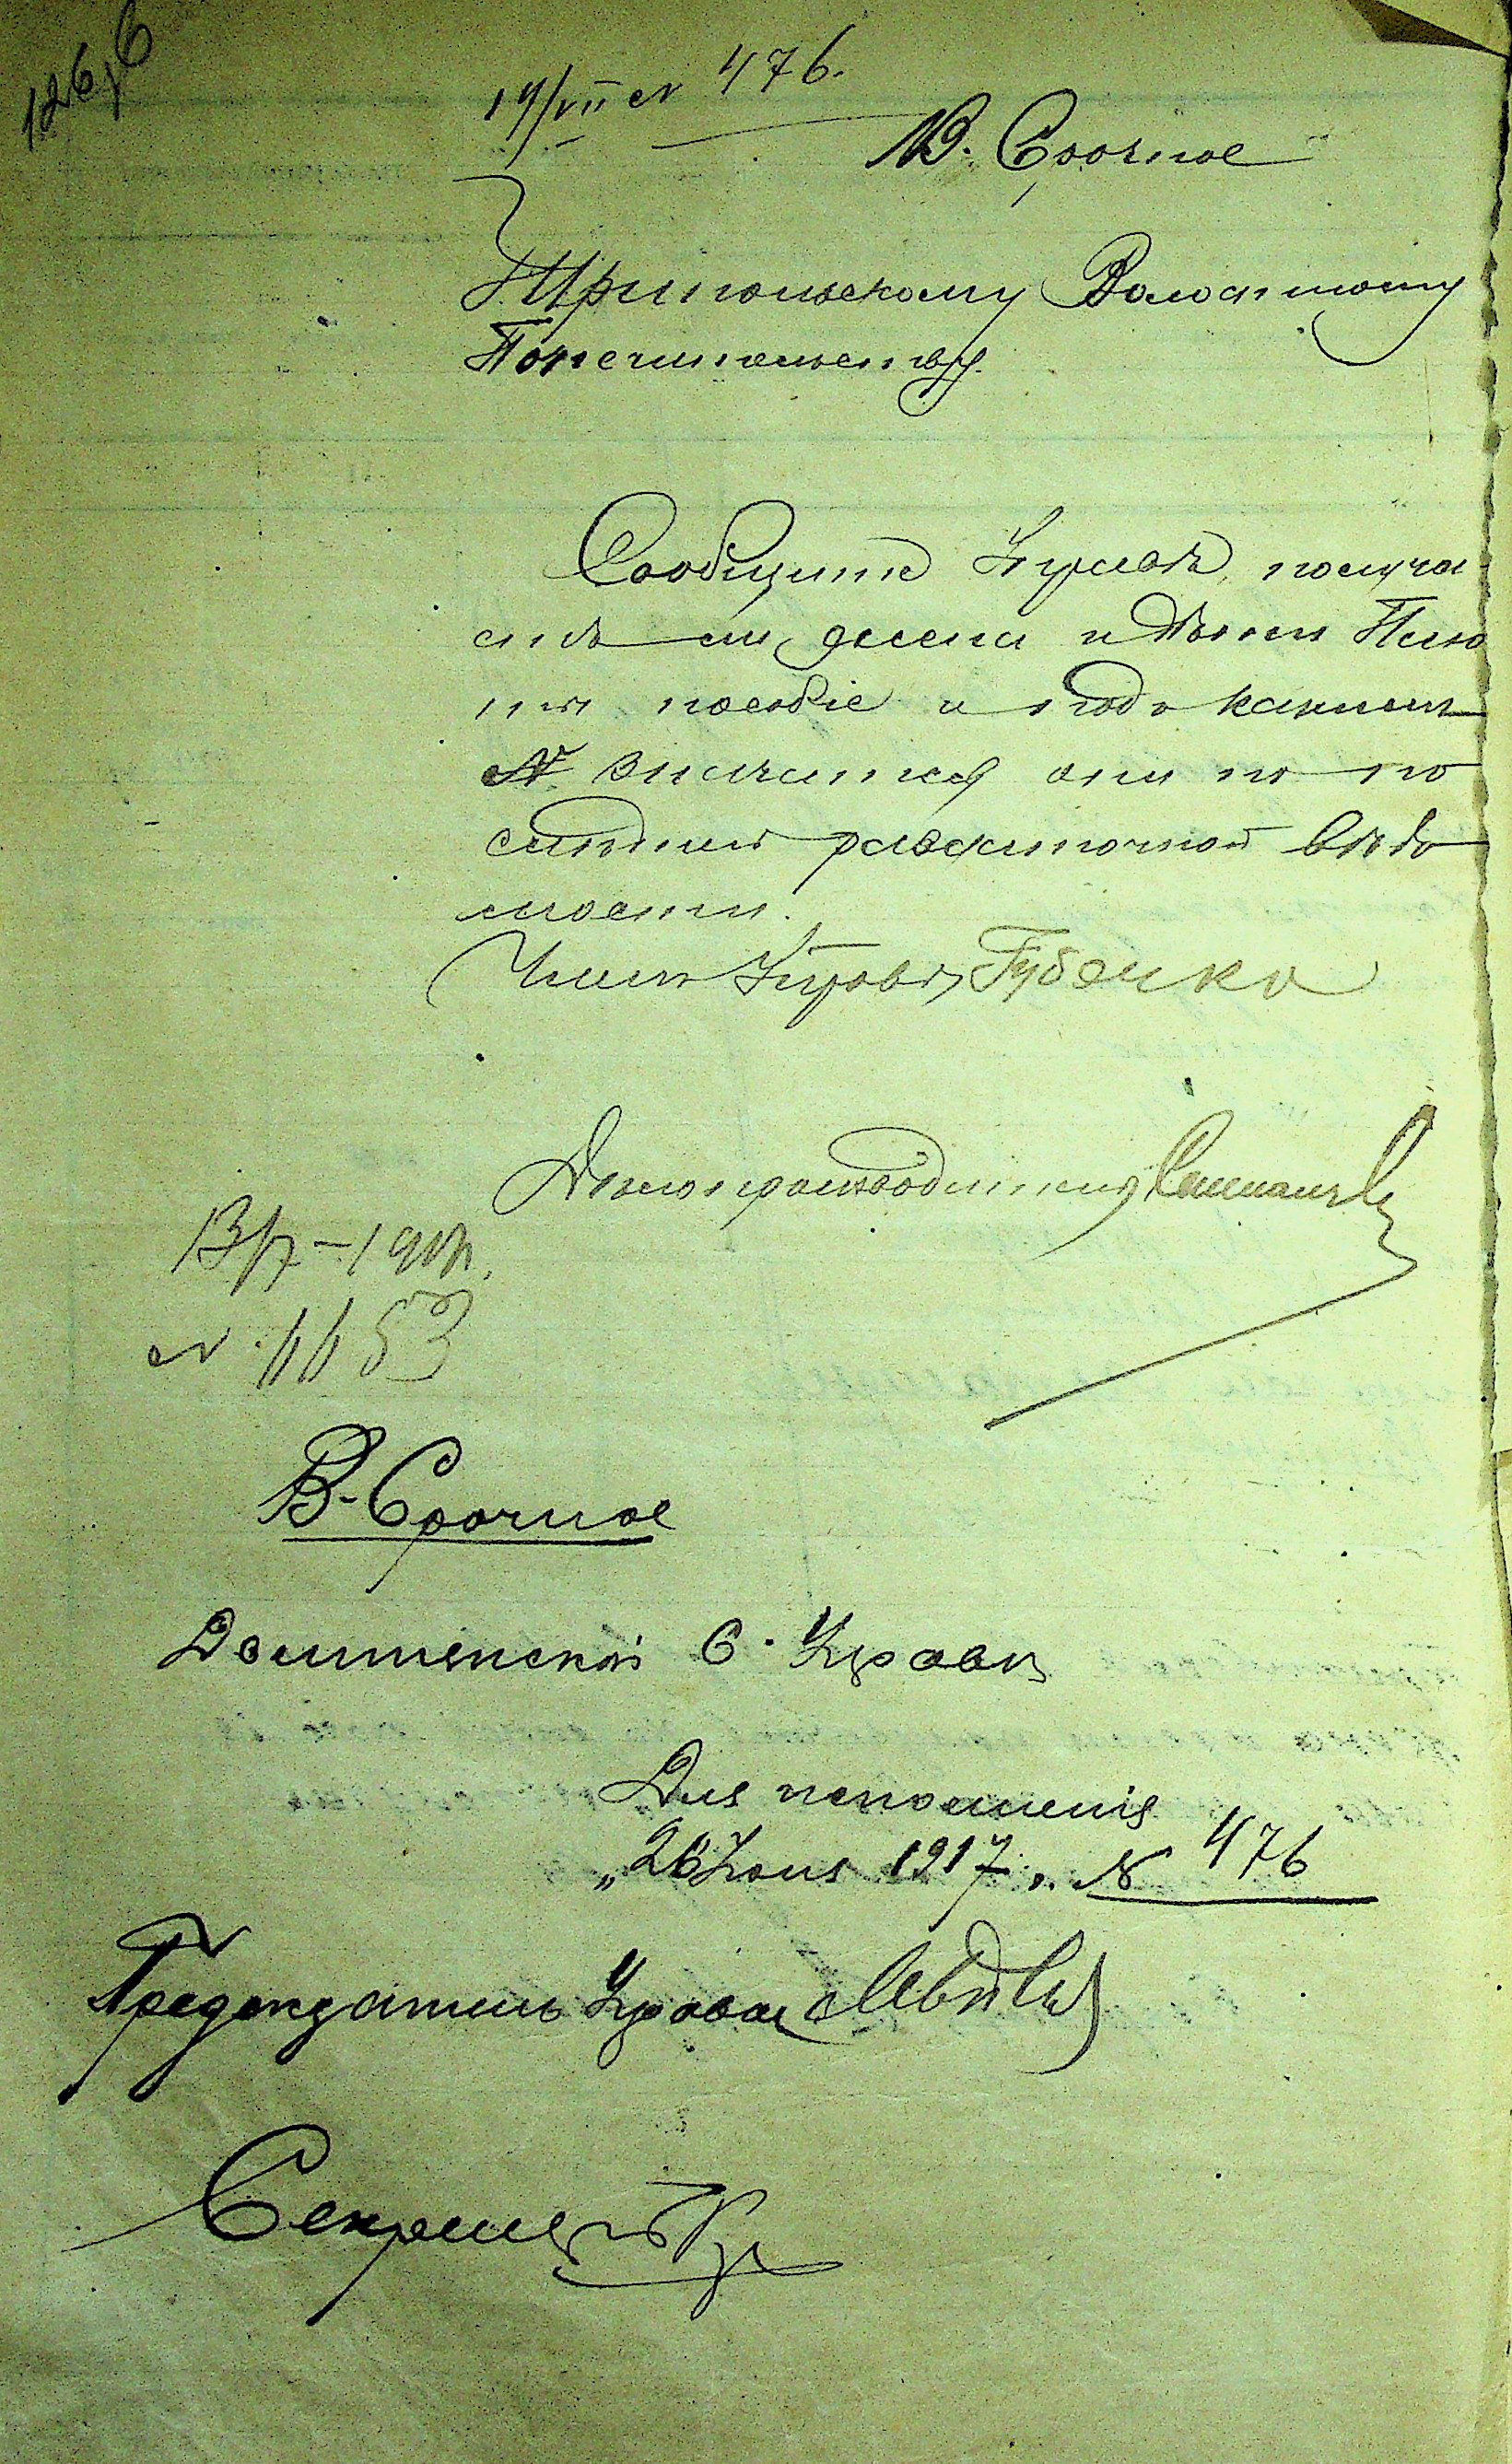 126,6
14/VII № 476.
В. Срочное
Трипольскому Волостному
Попечительству.
Сообщите Управѣ, получа
етъ ли жена и дѣти
пособіе и подъ какимъ
№ значится они по по
слѣдней раскладочной вѣдо
мости.
Членъ Управы Губенко
Дѣлопроизводитель
13/7 - 1917г.
№
В. Срочное
С. Управѣ
Для исполненія
„26" Іюня 1917 г. № 476
Предсѣдатель Управы
Секретарь